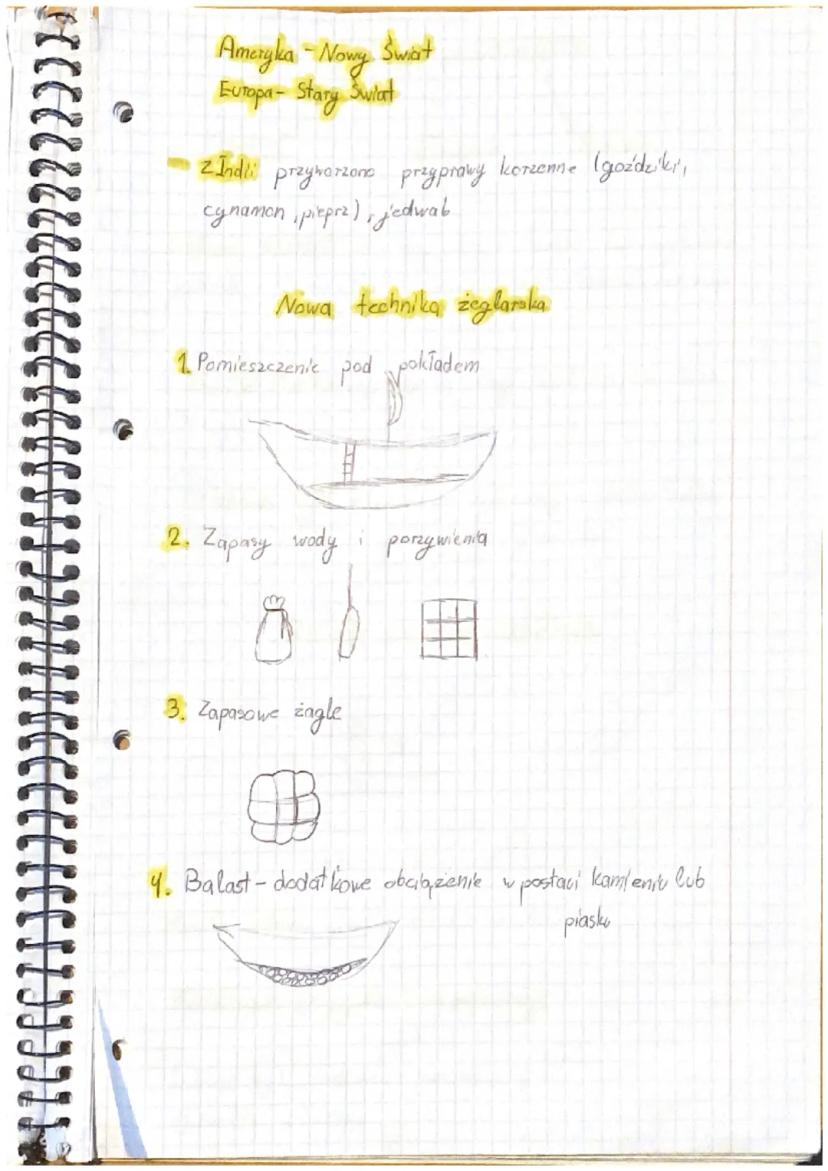 Ameryka - Nowy Świat
Europa - Stary Świat
- Z Indii przyworzono przyprawy korzenne (goździki,
cynamon, pieprz), jedwab
Nowa technika żeglarska
1. Pomieszczenie pod pokładem
2. Zapasy wody i porzywienia
3. Zapasowe żagle
4. Balast - dodatkowe obciążenie w postaci kamieniu lub
piasku